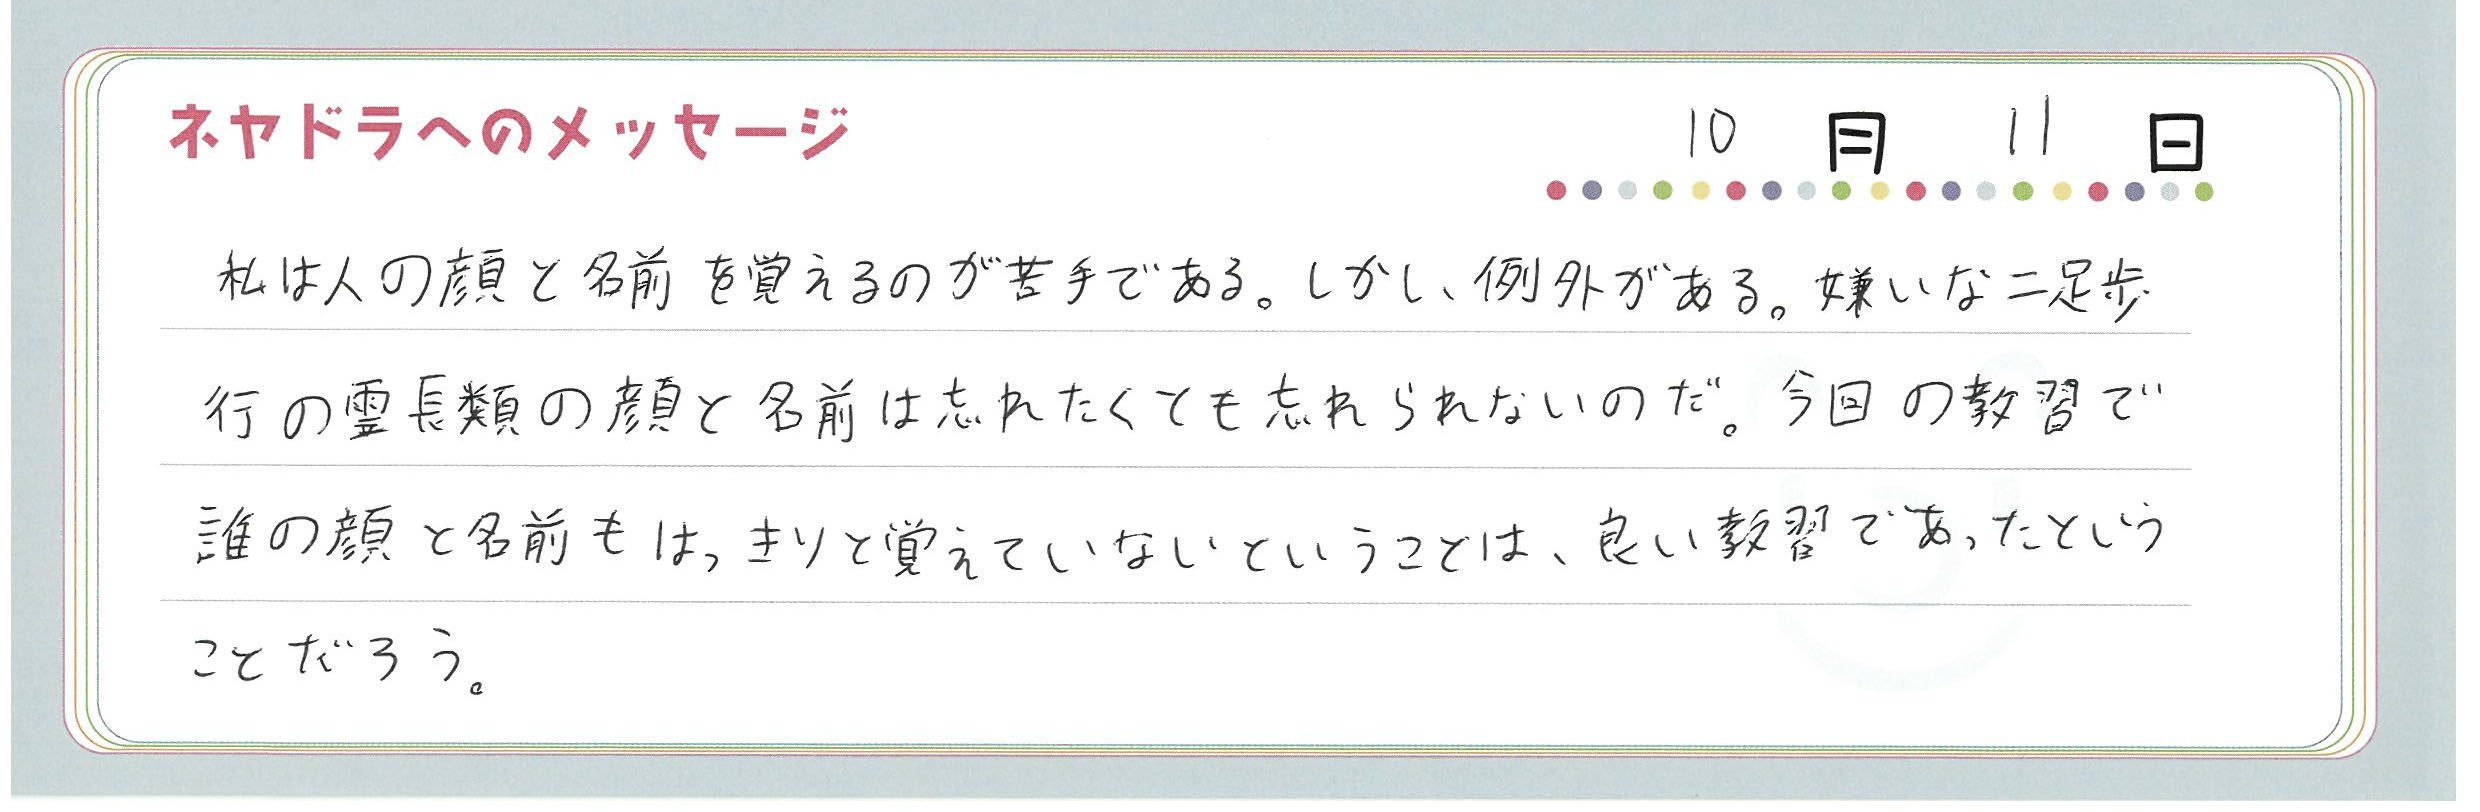 ネヤドラへのメッセージ
10月 11日
私は人の顔と名前を覚えるのが苦手である。しかし、例外がある。嫌いな二足歩
行の霊長類の顔と名前は忘れたくても忘れられないのだ。今回の教習で
誰の顔と名前もはっきりと覚えていないということは、良い教習であったという
ことだろう。